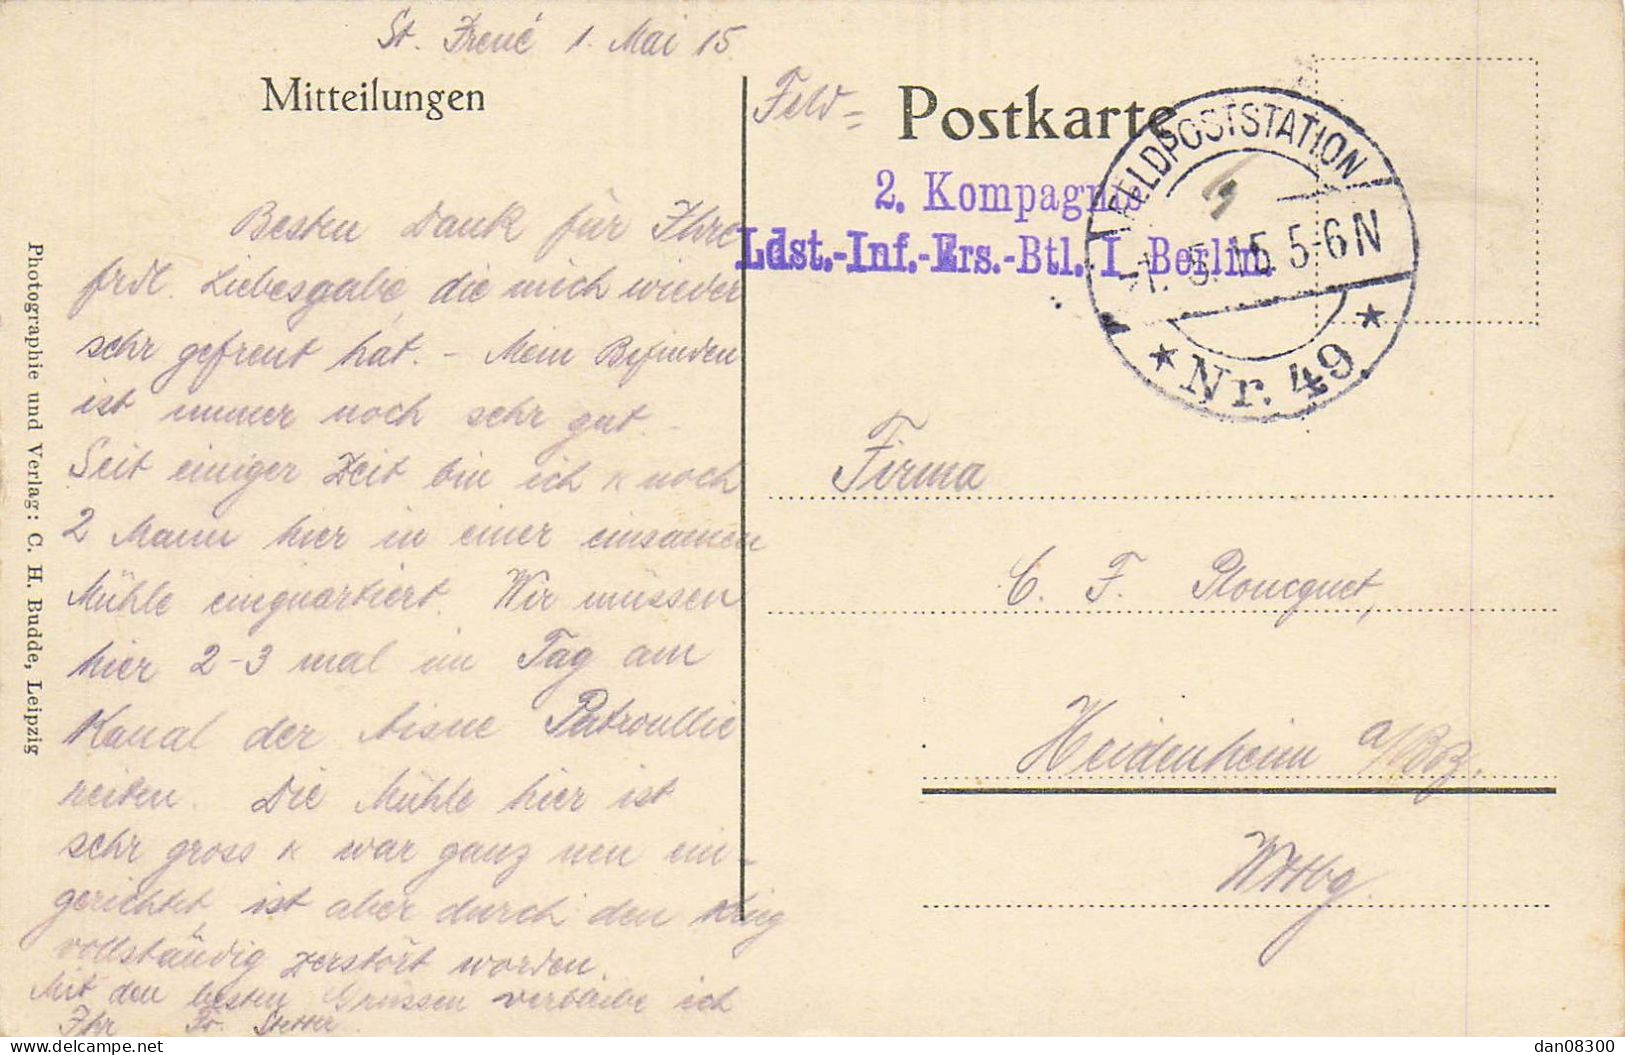 St. Frené 1. Mai 15.
Mitteilungen
Feld=
Postkarte
2. Kompagnie
Ldst.-Inf.-Ers.-Btl. I Berlin.
FELDPOSTSTATION
1. 5. 15 5-6 N
* Nr. 49. *
Besten Dank für Ihre
frdl. Liebesgabe, die mich wieder
sehr gefreut hat. - Mein Befinden
ist immer noch sehr gut. -
Seit einiger Zeit bin ich & noch
2 Mann hier in einer einsamen
Mühle einquartiert. Wir müssen
hier 2-3 mal im Tag am
Kanal der Aisne Patroullie
reiten. Die Mühle hier ist
sehr gross & war ganz neu ein-
gerichtet ist aber durch den Krieg
vollständig zerstört worden.
Mit den besten Grüssen verbleibe ich
Ihr Fr. Stetter
Firma
C. F. Ploucquet,
Heidenheim a/Brz.
Wttbg.
Photographie und Verlag: C. H. Budde, Leipzig
delcampe.net
dan08300